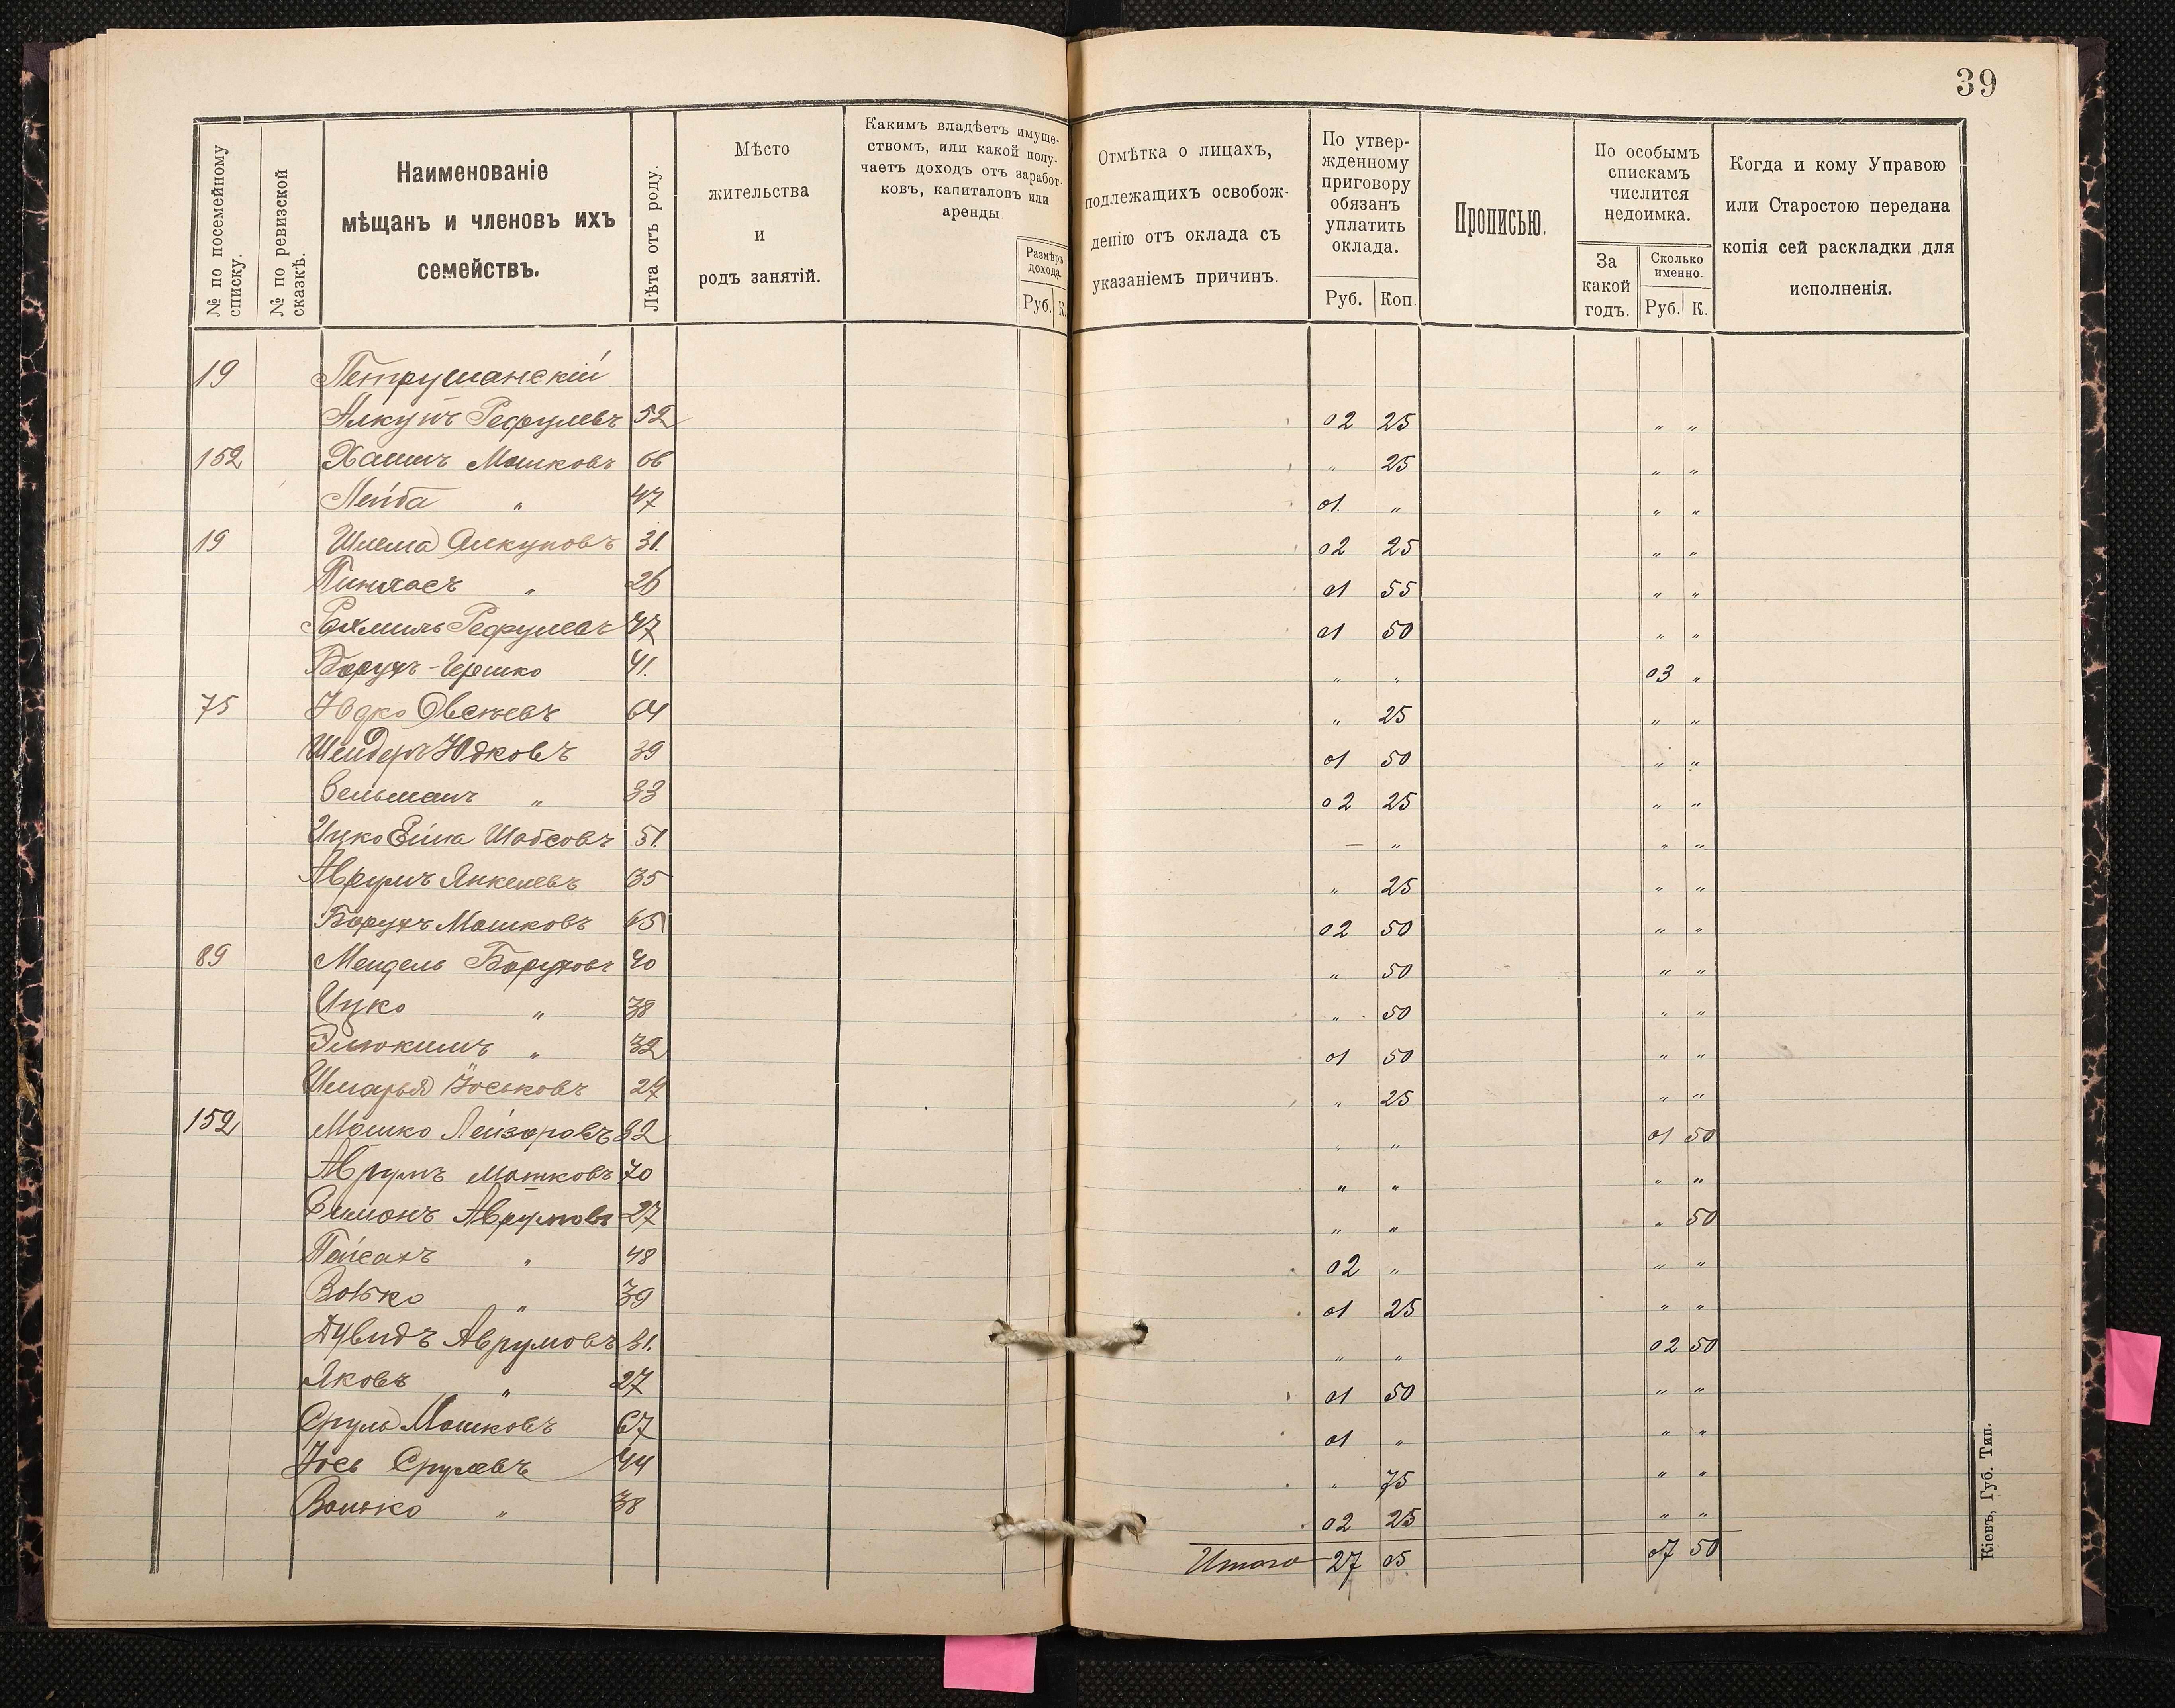 39
№ по посемейному списку.
№ по ревизской сказкѣ.
Наименованіе мѣщанъ и членовъ ихъ семействъ.
Лѣта отъ роду.
Мѣсто жительства и родъ занятій.
Какимъ владѣетъ имуществомъ, или какой получаетъ доходъ отъ заработковъ, капиталовъ или аренды
Размѣръ дохода.
Руб. К.
Отмѣтка о лицахъ, подлежащихъ освобожденію отъ оклада съ указаніемъ причинъ.
По утвержденному приговору обязанъ уплатить оклада.
Руб. Коп.
Прописью.
По особымъ спискамъ числится недоимка.
За какой годъ.
Сколько именно.
Руб. К.
Когда и кому Управою или Старостою передана копія сей раскладки для исполненія.
19 Петрушанскій
52 02 25 " "
152 Хаимъ Мошковъ 66 " 25 " "
Лейба " 47 01. " " "
19 Шлема Алкуновъ 31. 02 25 " "
Пинхасъ " 26 01 55 " "
Рахмиль 47 01 50 " "
Борухъ-Гершко 41. " " 03 "
75 Юдко Овсѣевъ 64 " 25 " "
Юдковъ 39 01 50 " "
Зельманъ " 33 02 25 " "
Ицко Шабсовъ 51. — " " "
Аврумъ Янкелевъ 35 " 25 " "
Борухъ Мошковъ 65 02 50 " "
89 Мендель Боруховъ 40 " 50 " "
Ицко " 38 " 50 " "
Элюкимъ " 32 01 50 " "
Шмарья Іоськовъ 27 " 25 " "
152 Мошко Лейзоровъ 32 " " 01 50
Аврумъ Мошковъ 70 " " " "
Симонъ Аврумовъ 27 " " " 50
Пейсахъ " 48 02 " " "
Волько " 39 01 25 " "
Дувидъ Аврумовъ 31. " " 02 50
Яковъ " 27 01 50 " "
Сруль Мошковъ 67 01 " " "
Іось Срулевъ 44 " 75 " "
Волько " 38 02 25 " "
Итого 27 05 07 50
Кіевъ, Губ. Тип.